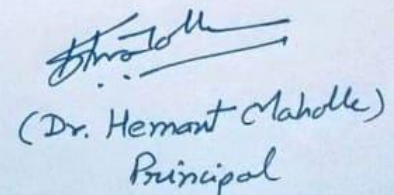 (Dr. Hemant Mahalle)
Principal